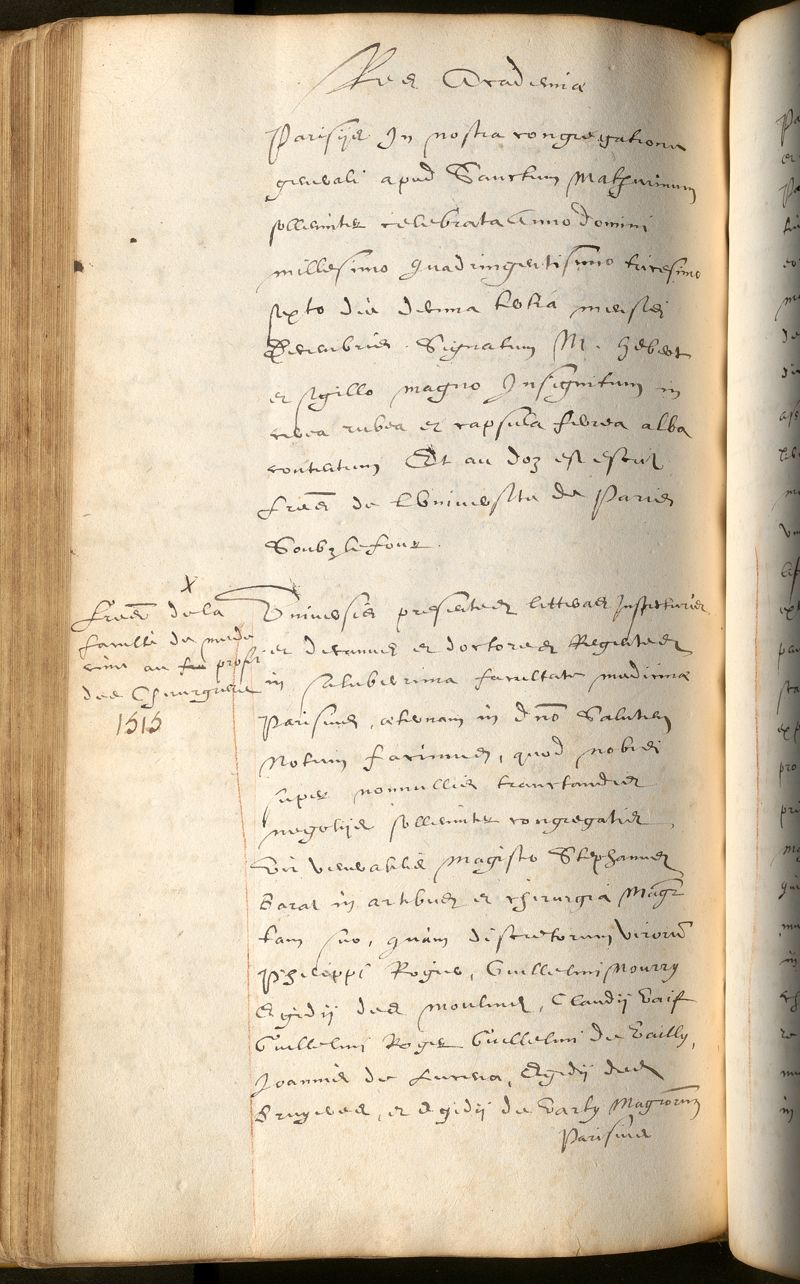 Res Academiæ
Parisijs In nostra congregatione
generali apud Sanctum Mathurinum
sollemniter celebrata Anno domini
millesimo quadringentesimo tricesimo
sexto die decima tertia mensis
Decembris. Signatum M. hebert
et sigillo magno Insignitum in
cera rubea et capsula ferrea alba
contentum Et au doz est escrit
Lrẽs de l'Université de Paris
Soubz le four.
X
Lrẽs de la
faculté de mede
cine au profit
des Chirurgiens
1515
Universis presentes litteras Inspecturis
et decanus et doctores Regentes
in saluberrima facultate medicinæ
Parisiens, æternam in dnõ Salutem
Notum facimus, quod nobis
super nonnullis tractandis
negotijs sollemniter congregatis
Vir venerabilis magister Stephanus
Barat in artibus et chirurgia Magr
tam suo, quàm discretorum virorũ
Philippi Roger, Guillelmi Nourry
Egidij des moulins, Claudij Vaif
Guillelmi Roger Guillelmi de Vailly,
Joannis de Lucena, Egidij des
Brugeres, et Egidij de Varly Magrorum
Parisiens